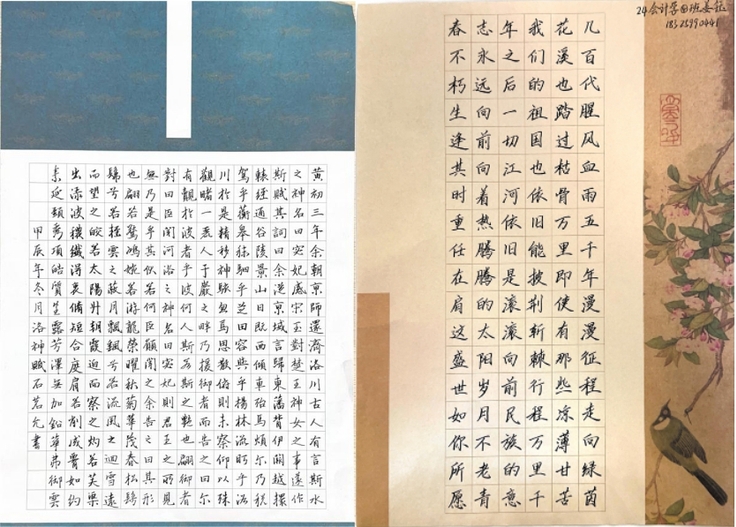 黄初三年余朝京師還濟洛川古人有言斯水
之神名曰宓妃感宋玉對楚王神女之事遂作
斯賦其詞曰余從京城言歸東藩背伊闕越轘
轅經通谷陵景山日既西傾車殆馬煩爾乃税
駕乎蘅皋秣駟乎芝田容與乎楊林流眄乎洛
川於是精移神駭忽焉思散俯則未察仰以殊
觀睹一麗人于巖之畔乃援御者而告之曰爾
有覿於彼者乎彼何人斯若斯之艷也御者
對曰臣聞河洛之神名曰宓妃則君王之所見
無乃是乎其狀若何臣願聞之余告之曰其形
也翩若驚鴻婉若游龍榮曜秋菊華茂春松髣
髴兮若輕雲之蔽月飄颻兮若流風之迴雪遠
而望之皎若太陽升朝霞迫而察之灼若芙蕖
出淥波穠纖得衷脩短合度肩若削成腰如約
素延頸秀項皓質呈露芳澤無加鉛華弗御雲
甲辰年冬月洛神賦石若允書
24会计学④班姜钰
18325990441
几百代腥风血雨五千年漫漫征程走向绿茵
花溪也踏过枯骨万里即使有那些凉薄甘苦
我们的祖国也依旧能披荆斩棘行程万里千
年之后一切江河依旧是滚滚向前民族的意
志永远向前向着热腾腾的太阳岁月不老青
春不朽生逢其时重任在肩这盛世如你所愿